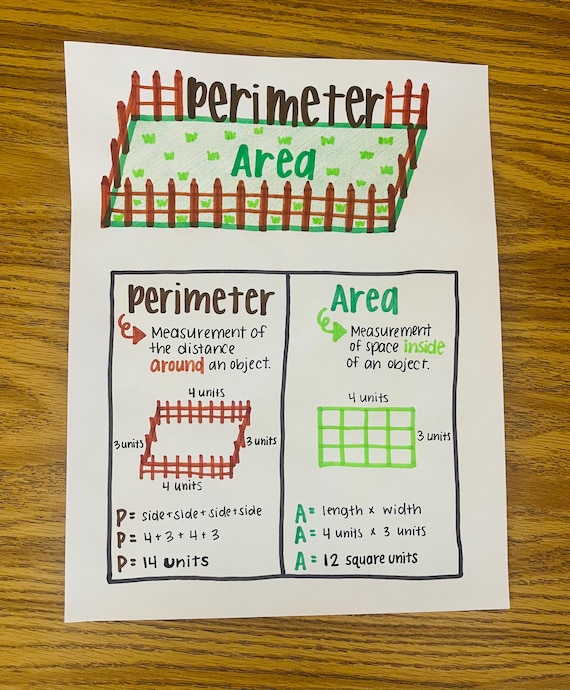 perimeter
Area
perimeter
Measurement of
the distance
around an object.
4 units
3 units
3 units
4 units
P= side+side+side+side
P= 4+3+4+3
P= 14 units
Area
Measurement
of space inside
of an object.
4 units
3 units
A= length x width
A= 4 units x 3 units
A= 12 square units